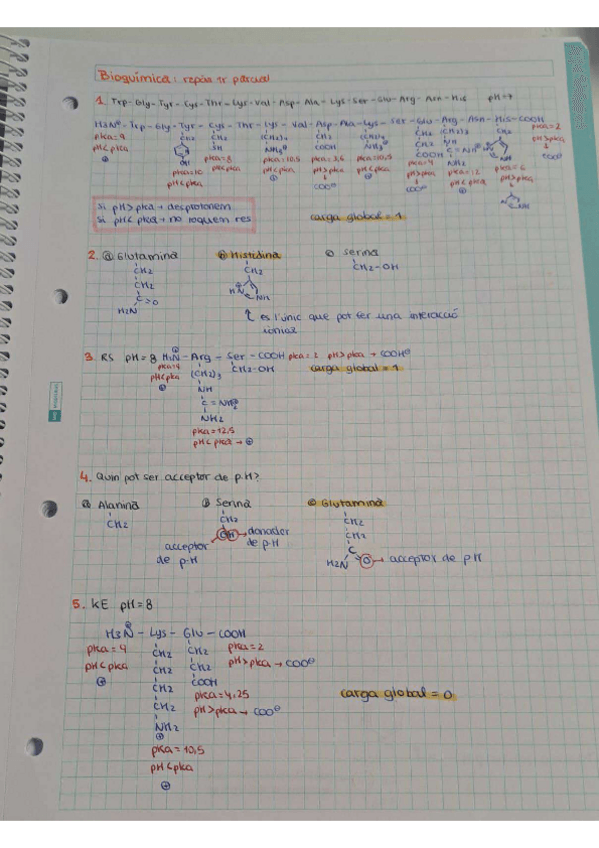 Bioquímica: repàs 1r parcial
1. Trp-Gly-Tyr-Cys-Thr-Lys-Val-Asp-Ala-Lys-Ser-Glu-Arg-Asn-His pH=7
H3N⊕-Trp-Gly-Tyr-Cys-Thr-Lys-Val-Asp-Ala-Lys-Ser-Glu-Arg-Asn-His-COOH
pka=9 pH<pka ⊕
CH2 OH pka=10 pH<pka
CH2 SH pka=8 pH<pka
(CH2)4 NH3⊕ pka=10,5 pH<pka ⊕
CH2 COOH pka=3,6 pH>pka COO⊖
(CH2)4 NH3⊕ pka=10,5 pH<pka ⊕
CH2 CH2 COOH pka=4 pH>pka COO⊖
(CH2)3 NH C=NH2⊕ pH<pka ⊕
CH2 pka=6 pH>pka
pka=2 pH>pka COO⊖
Si pH>pka → desprotonem
Si pH<pka → no toquem res
carga global = 1
2. a) Glutamina b) Histidina c) Serina
CH2 CH2 C=O H2N
CH2 HN NH
CH2-OH
↑ es l'únic que pot fer una interacció
iònica
3. RS pH=8 H3N⊕-Arg-Ser-COOH pka=2 pH>pka → COO⊖
pka=9 pH<pka ⊕
(CH2)3 NH C=NH2⊕ NH2
CH2-OH
carga global = 1
pka=12,5
pH<pka → ⊕
4. Quin pot ser acceptor de p.H?
a) Alanina b) Serina c) Glutamina
CH2
CH2 OH → donador de p.H
acceptor de p.H
CH2 CH2 C H2N O → acceptor de p.H
5. KE pH=8
H3N⊕-Lys-Glu-COOH
pka=9 pH<pka ⊕
CH2 CH2 CH2 CH2 NH2 ⊕
CH2 CH2 COOH
pka=2
pH>pka → COO⊖
pka=4,25
pH>pka → COO⊖
carga global = 0
pka=10,5
pH<pka
⊕